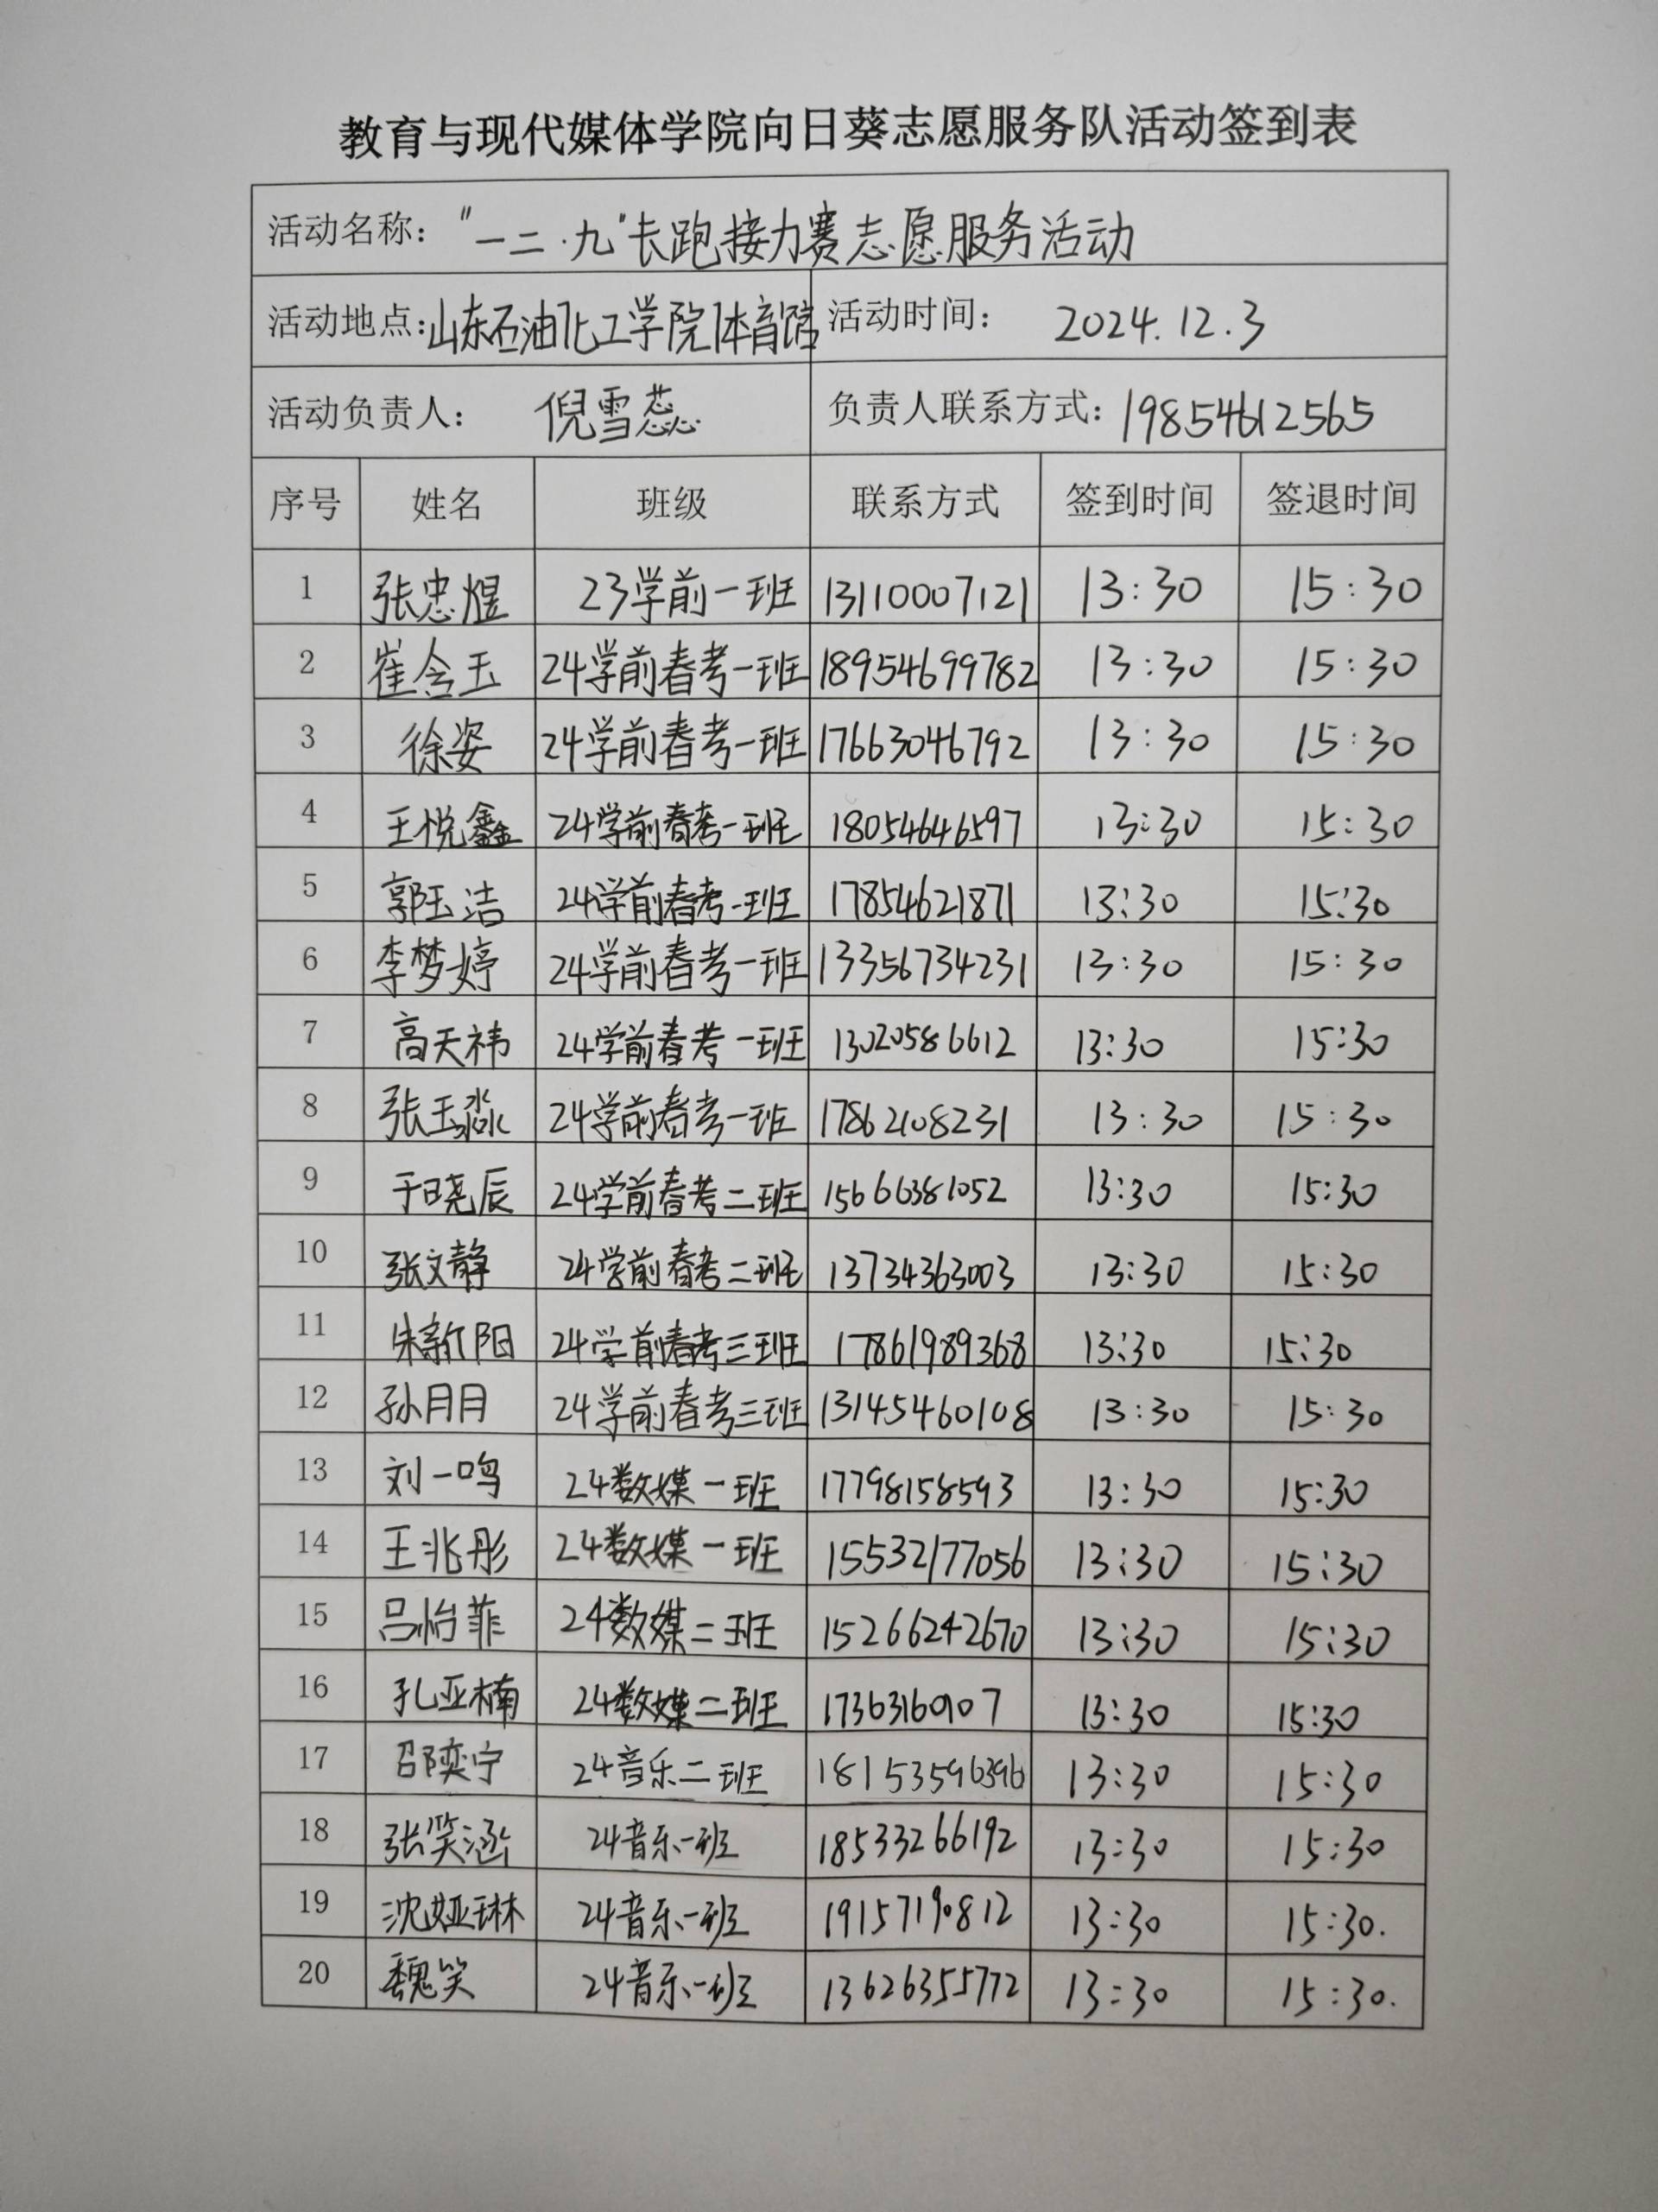 教育与现代媒体学院向日葵志愿服务队活动签到表
活动名称: "一二·九"长跑接力赛志愿服务活动
活动地点: 山东石油化工学院体育馆 活动时间: 2024.12.3
活动负责人: 倪雪蕊 负责人联系方式: 19854612565
序号 姓名 班级 联系方式 签到时间 签退时间
1 张忠煜 23学前一班 13110007121 13:30 15:30
2 崔含玉 24学前春考一班 18954699782 13:30 15:30
3 徐姿 24学前春考一班 17663046792 13:30 15:30
4 王悦鑫 24学前春考一班 18054646597 13:30 15:30
5 郭玉洁 24学前春考一班 17854621871 13:30 15:30
6 李梦婷 24学前春考一班 13356734231 13:30 15:30
7 高天祎 24学前春考一班 13020586612 13:30 15:30
8 张玉淼 24学前春考一班 17862108231 13:30 15:30
9 于晓辰 24学前春考二班 15666381052 13:30 15:30
10 张文静 24学前春考二班 13734363003 13:30 15:30
11 朱新阳 24学前春考三班 17861989368 13:30 15:30
12 孙月月 24学前春考三班 13145460108 13:30 15:30
13 刘一鸣 24数媒一班 17798158593 13:30 15:30
14 王兆彤 24数媒一班 15532177056 13:30 15:30
15 吕怡菲 24数媒二班 15266242670 13:30 15:30
16 孔亚楠 24数媒二班 17363160107 13:30 15:30
17 邵奕宁 24音乐二班 18153596396 13:30 15:30
18 张笑涵 24音乐一班 18533266192 13:30 15:30
19 沈娅琳 24音乐一班 19157190812 13:30 15:30.
20 魏笑 24音乐一班 13626355772 13:30 15:30.